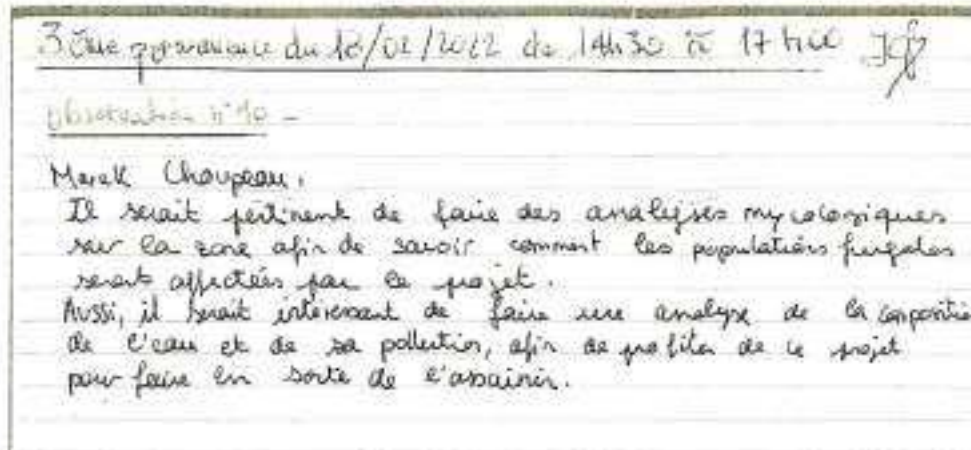 3ème permanence du 18/02/2022 de 14h30 à 17h00
Observation n°10 -
Marek Choupeau.
Il serait pertinent de faire des analyses mycologiques
sur la zone afin de savoir comment les populations fongales
seront affectées par le projet.
Aussi, il serait intéressant de faire une analyse de la compositio
de l'eau et de sa pollution, afin de profiter de ce projet
pour faire en sorte de l'assainir.